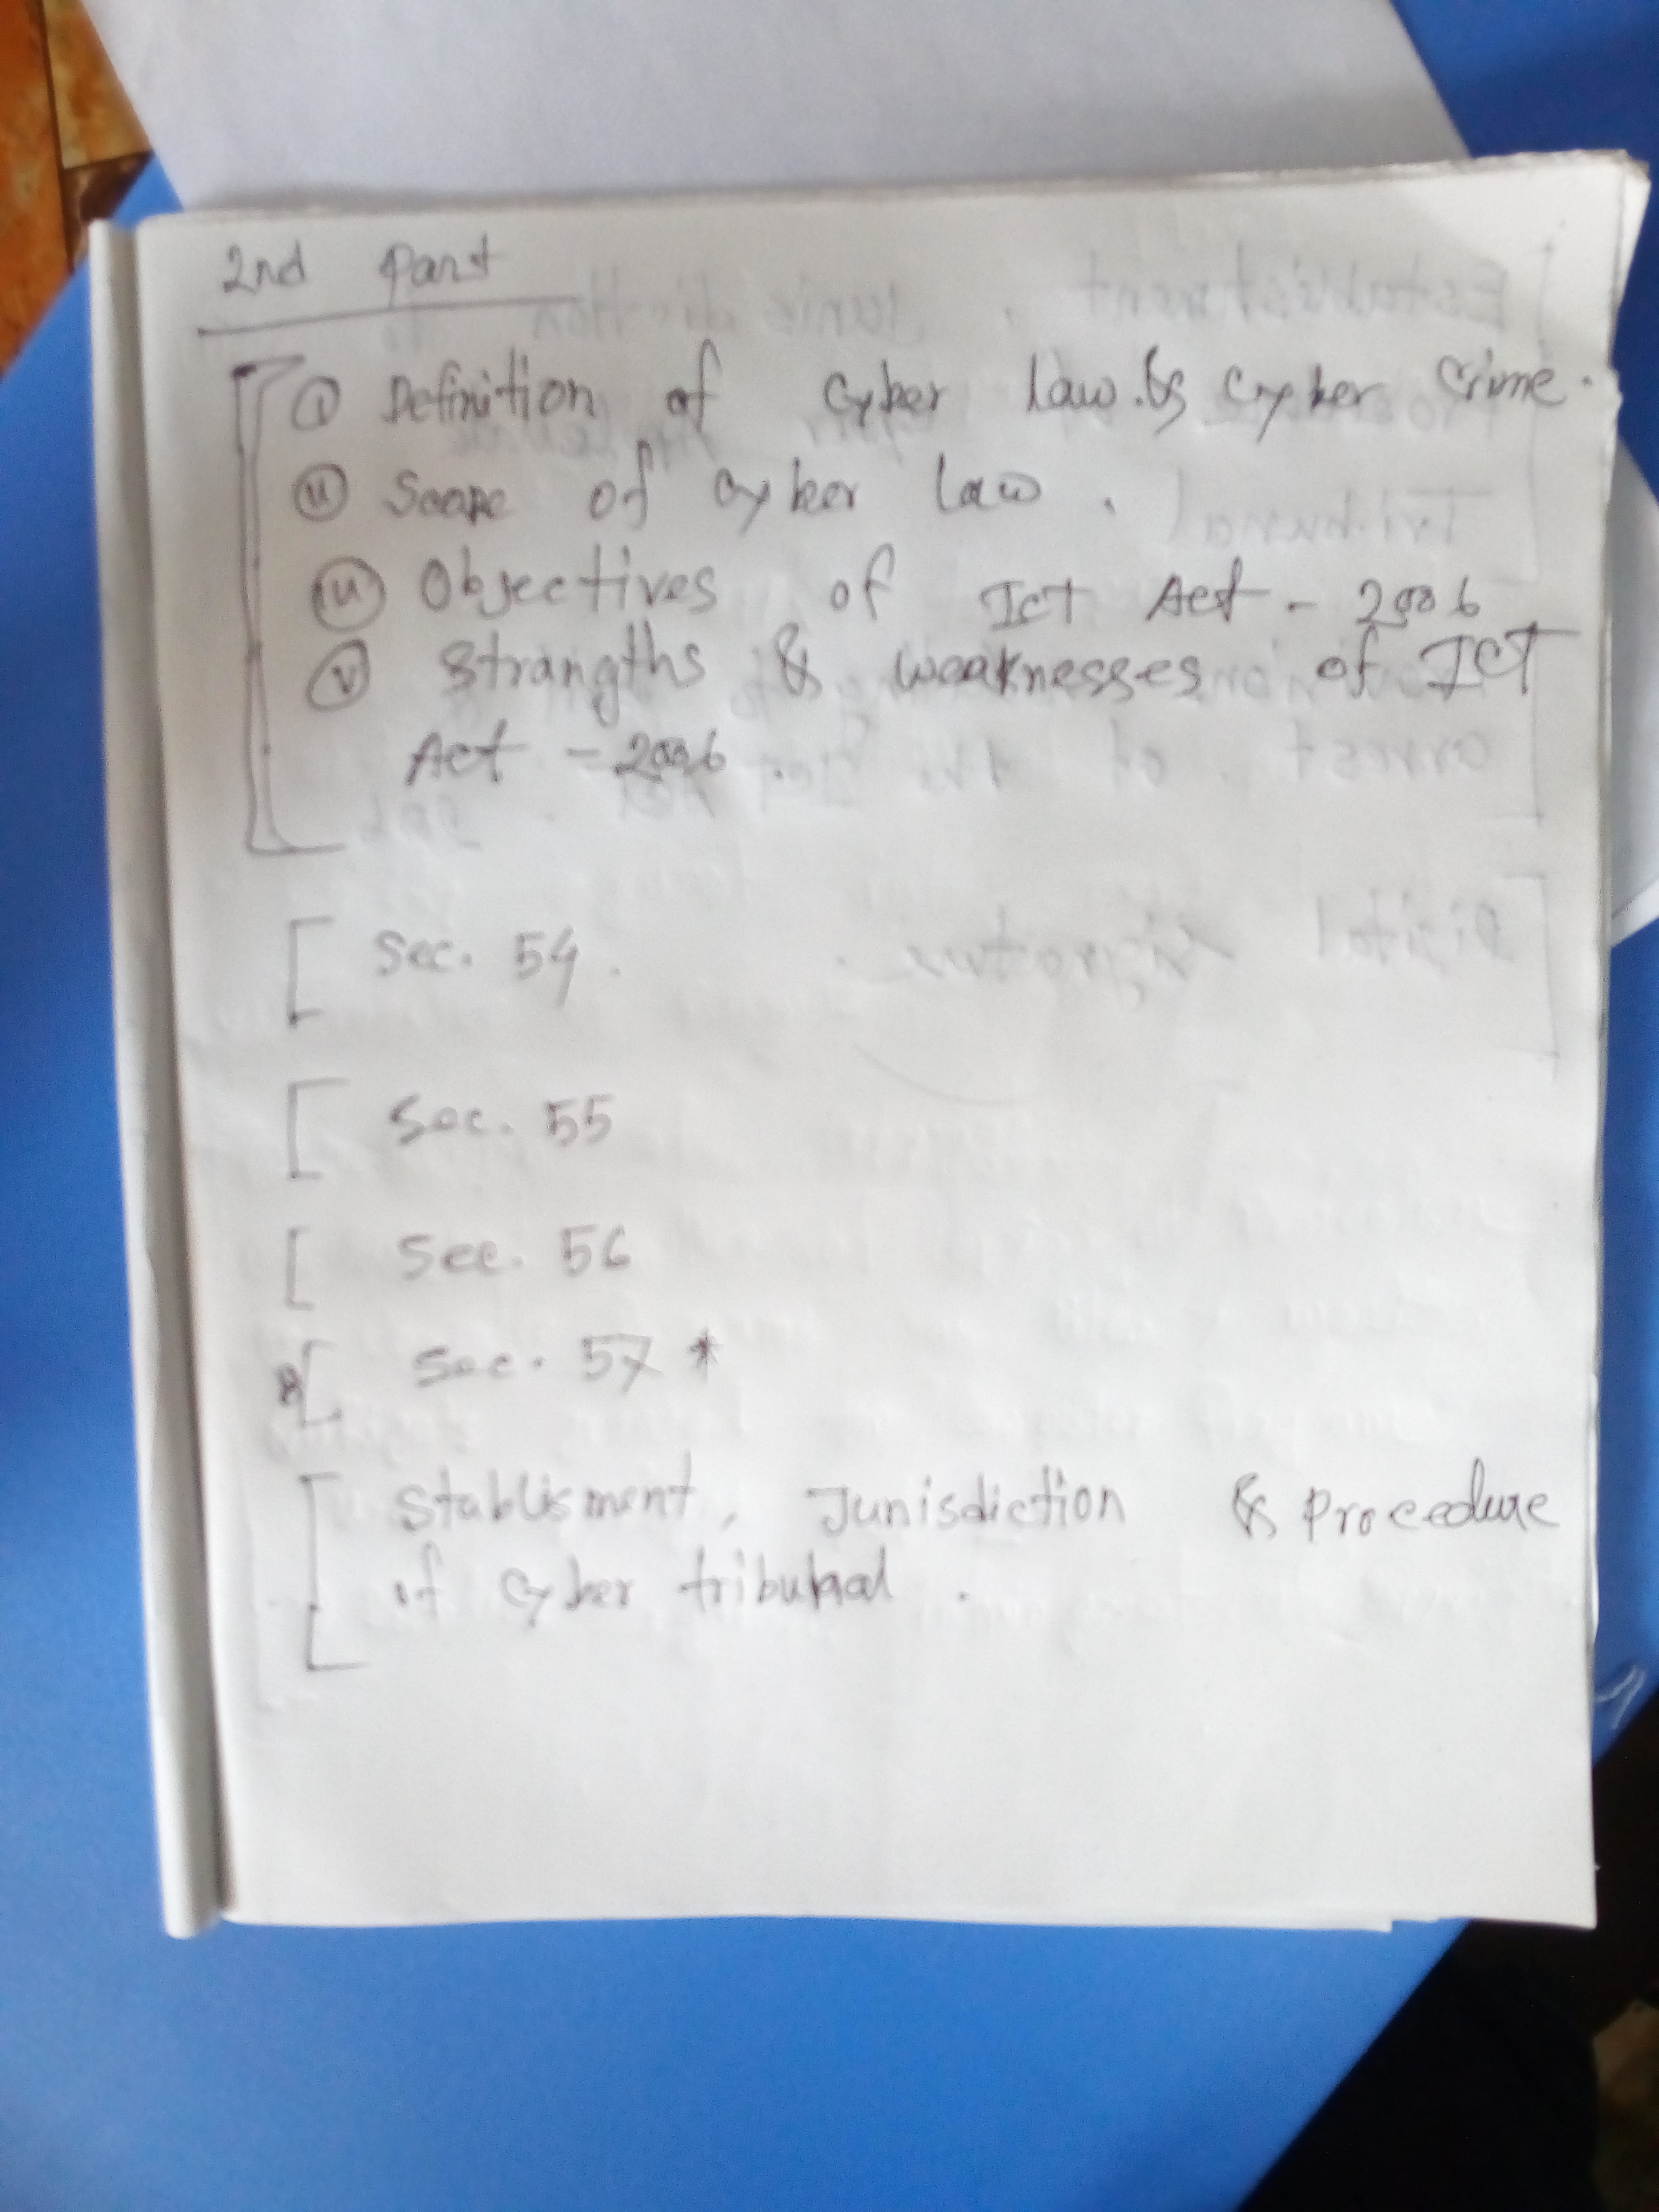 2nd part
(i) Definition of Cyber Law & Cyber Crime.
(ii) Scope of Cyber Law.
(iii) Objectives of ICT Act - 2006
(v) Strangths & weaknesses of ICT
Act - 2006.
Sec. 54.
Sec. 55
Sec. 56
Sec. 57 *
Stablisment, Jurisdiction & Procedure
of Cyber tribunal.